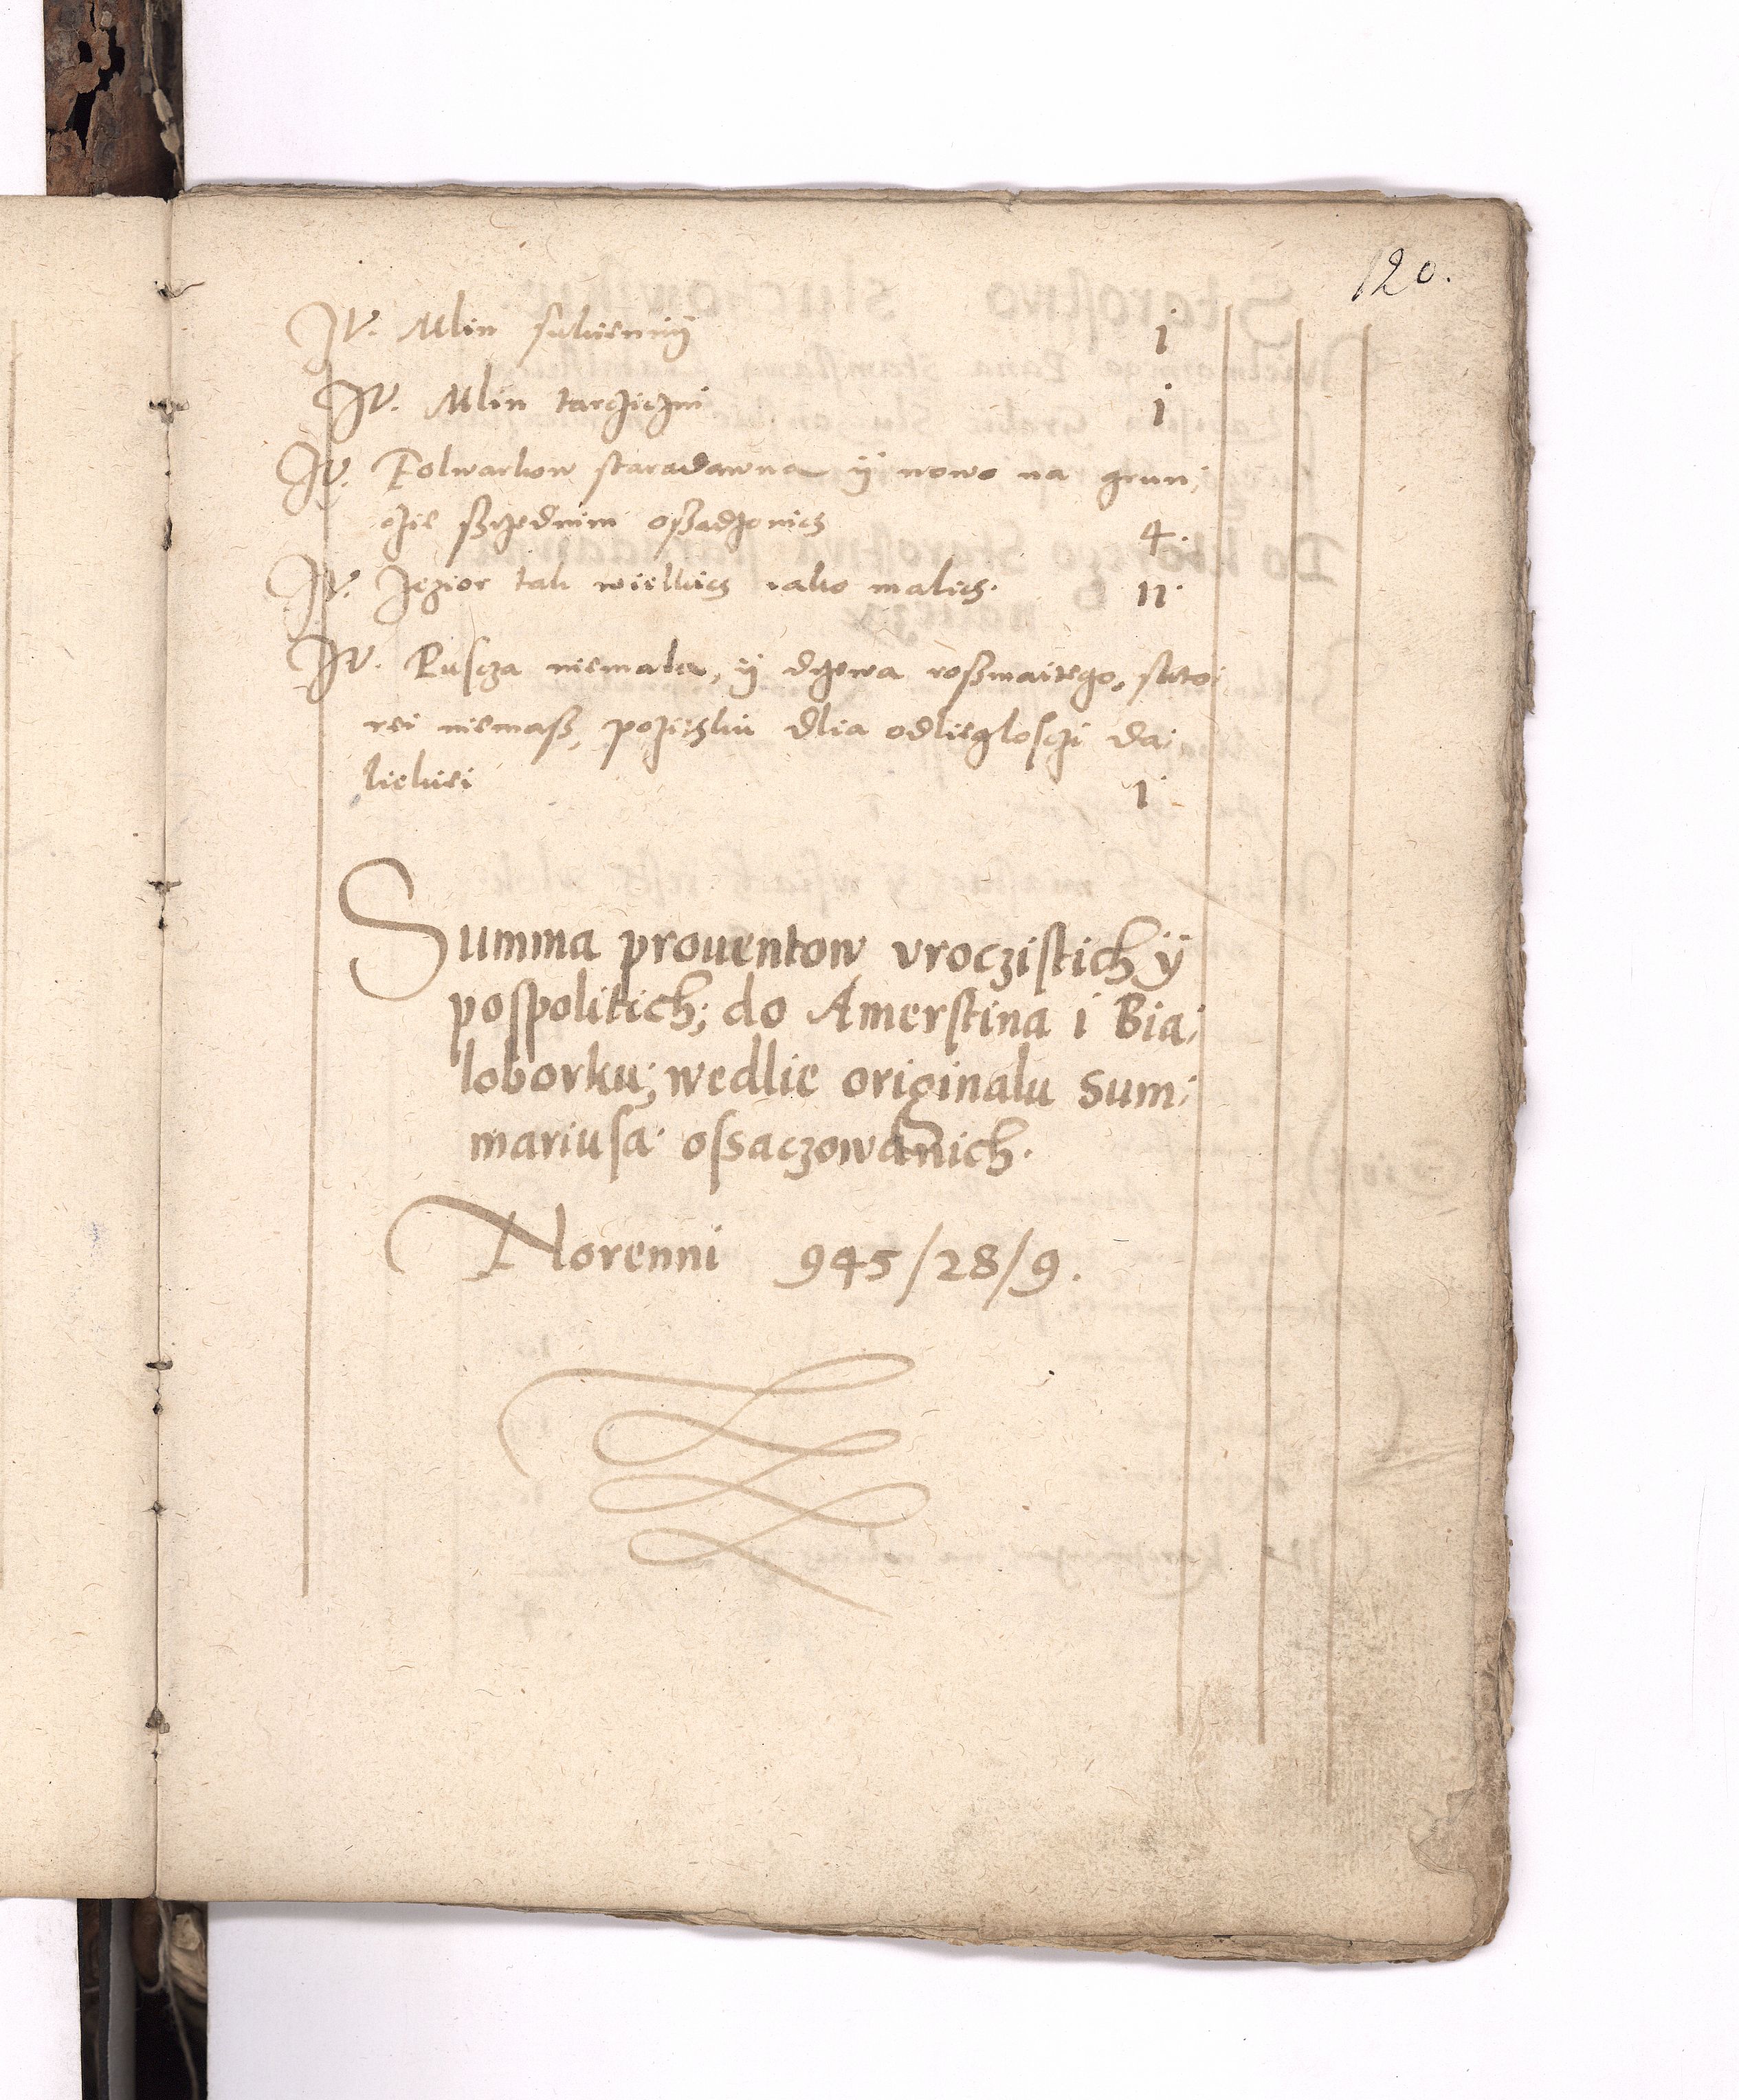 120.
It. Mlin sukienniÿ 1
It. Mlin tarcziczni 1
It. Folwarkow staradawna ÿ nowo na grun;
czie sszczednim ossadzonich 4.
It. Jezior tak wielkich iako malich. 11.
It. Puscza niemala, ÿ drzewa rossmaitego, skto;
rei niemass, pozitku dlia odlieglosczi da;
liekiei 1
Summa prouentow vroczistich ÿ
pospolitich; do Amerstina i Bia;
loborku; wedlie originalu Sum;
mariusa ossaczowanich.
Florenni 945/28/9.